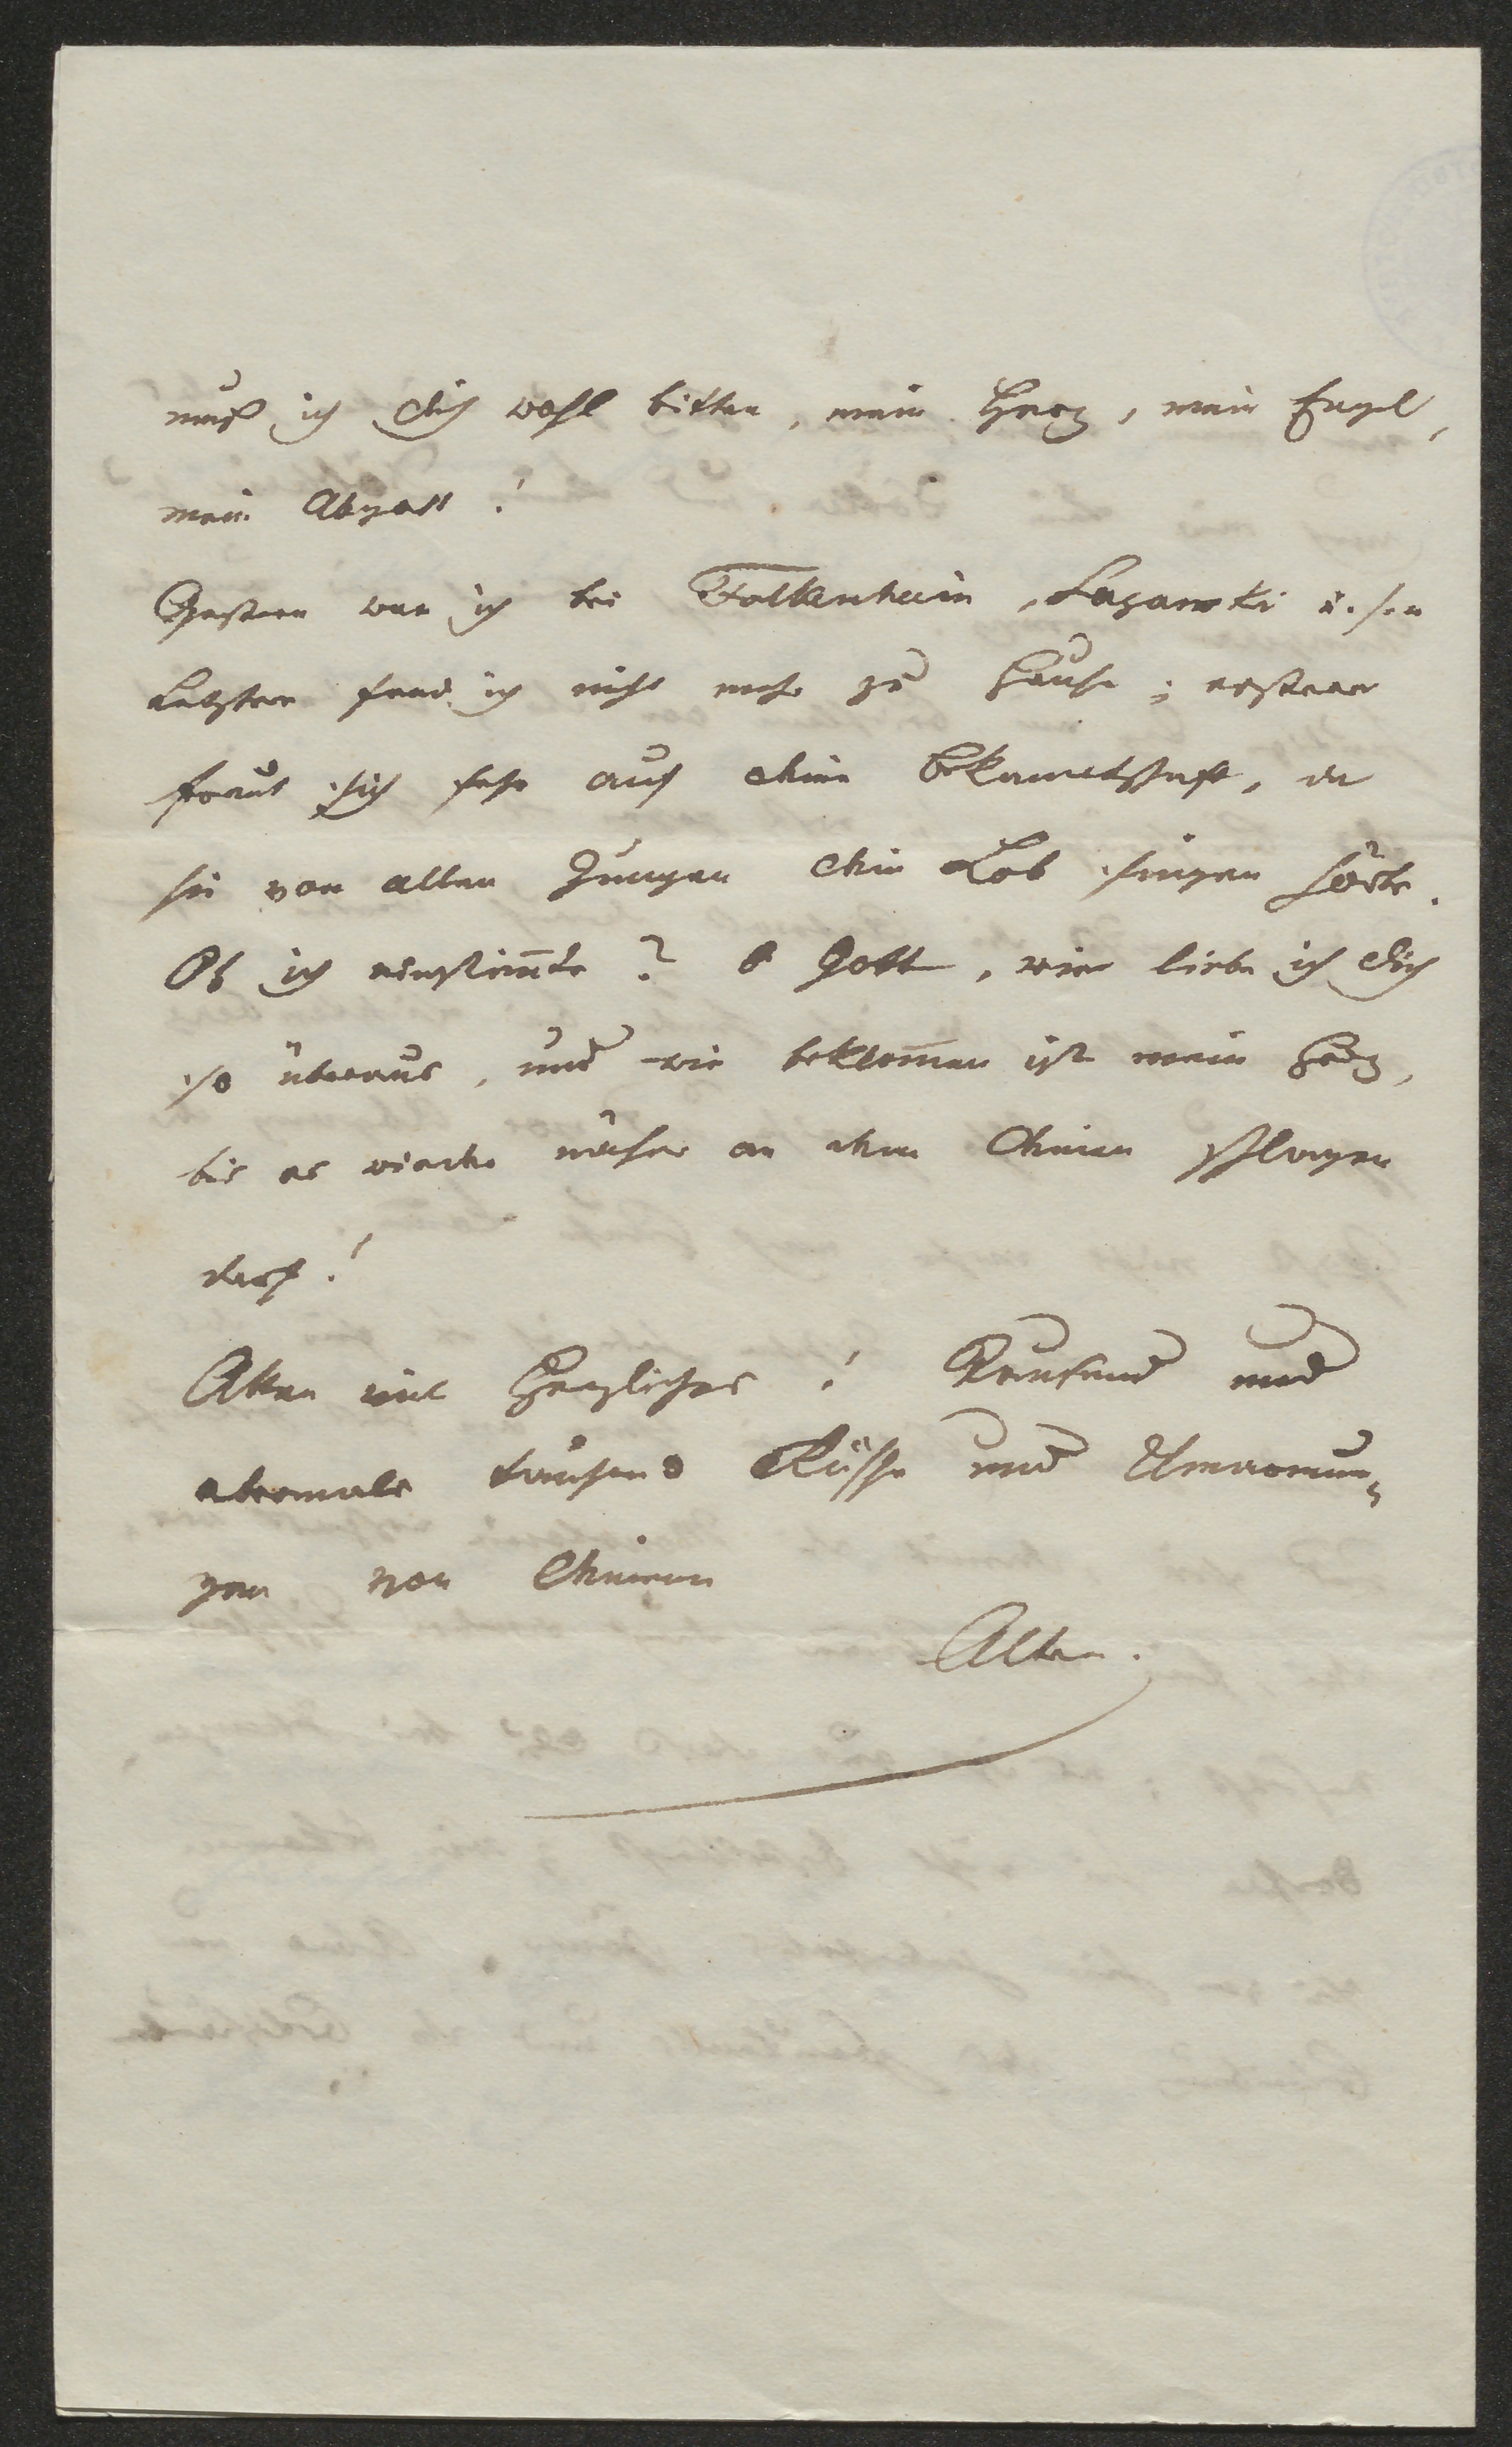 muß ich Dich wohl bitten, mein Herz, mein Engel,
mein Abgott!
Gestern war ich bei Falkenhain, Lazanski u.
Letztere fand ich nicht mehr zu Hause; erstere
freut sich sehr auf Deine Bekanntschaft, da
sie von allen Zungen Dein Lob singen hörte.
Ob ich einstim̅te? O Gott, wie liebe ich Dich
so überaus, und wie beklom̅en ist mein Herz,
bis es wieder näher an dem Deinen schlagen
darf!
Allen viel Herzliches! Tausend und
abermals tausend Küsse und Umarmun-
gen von Deinem
Alten.